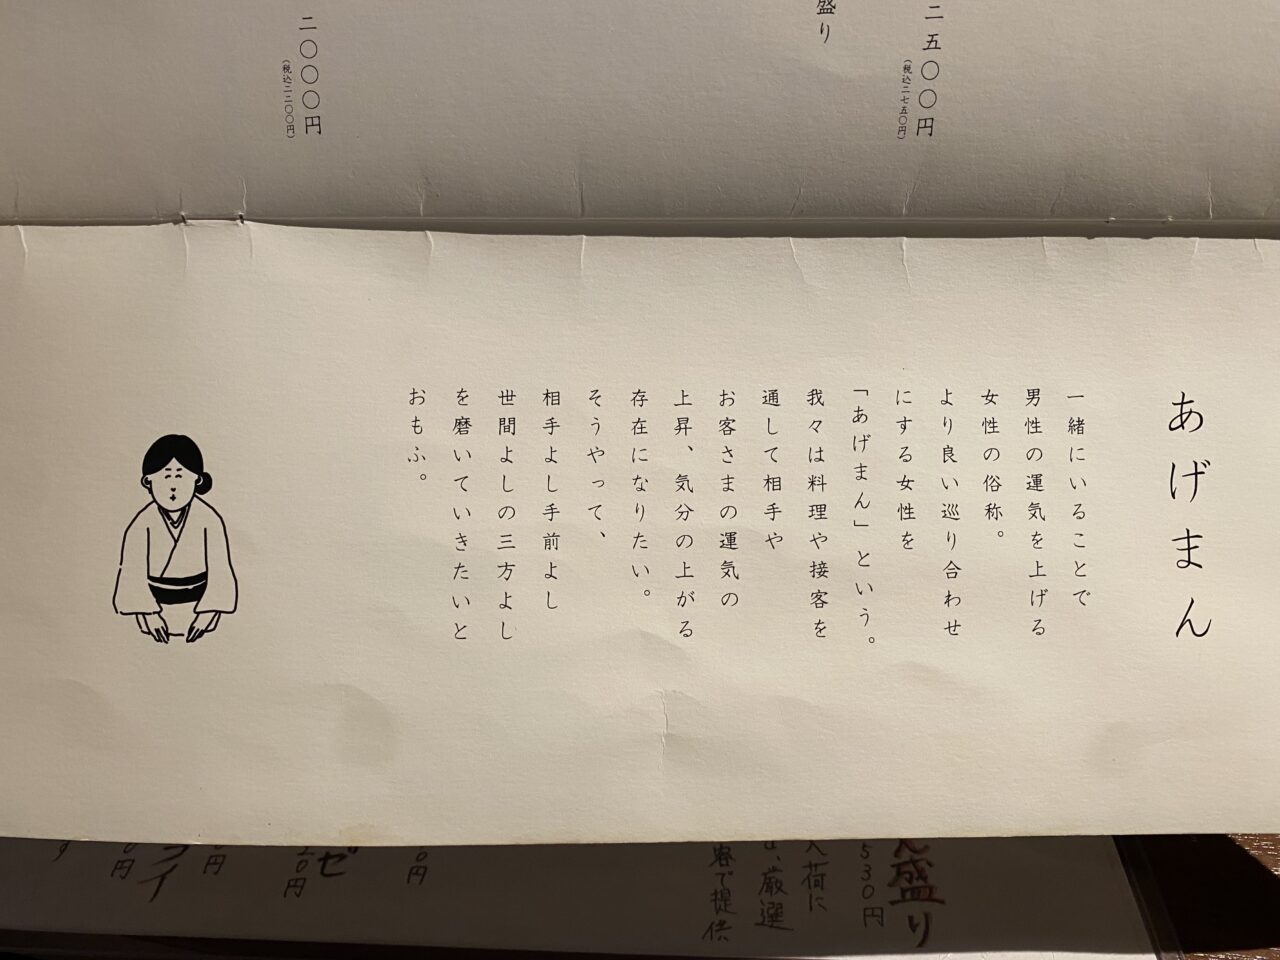 盛り
二五〇〇円
(税込二七五〇円)
二〇〇〇円
(税込二二〇〇円)
あげまん
一緒にいることで
男性の運気を上げる
女性の俗称。
より良い巡り合わせ
にする女性を
「あげまん」という。
我々は料理や接客を
通して相手や
お客さまの運気の
上昇、気分の上がる
存在になりたい。
そうやって、
相手よし手前よし
世間よしの三方よし
を磨いていきたいと
おもふ。
ん盛り
530円
入荷に
は、厳選
で提供
0円
ゼ
10円
0円
ライ
0円
す